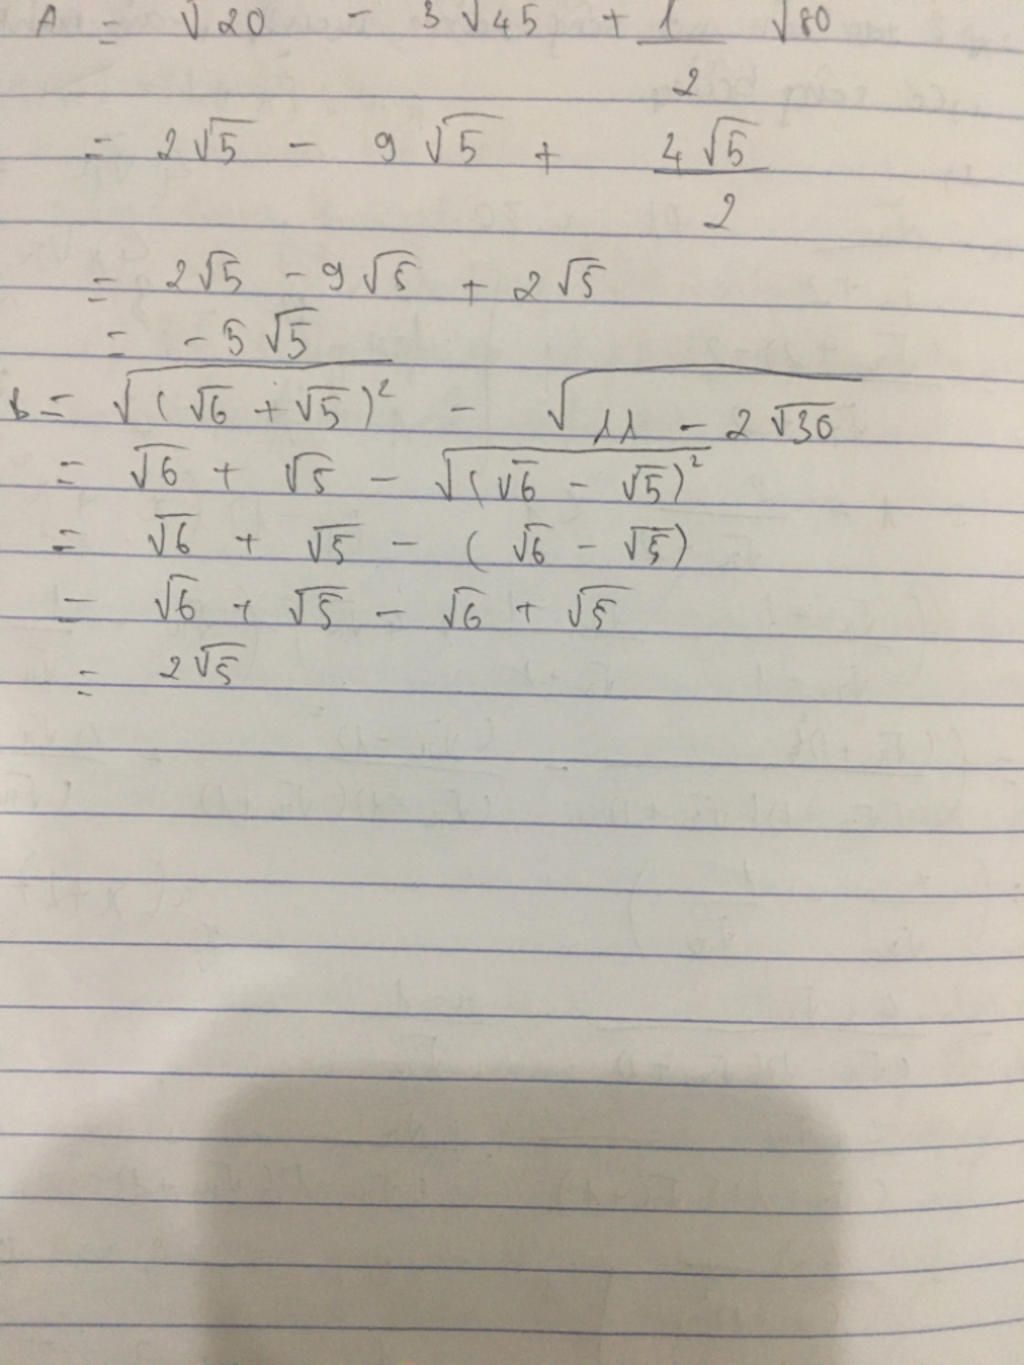 A = √20 - 3√45 + 1/2 √80
= 2√5 - 9√5 + 4√5/2
= 2√5 - 9√5 + 2√5
= -5√5
b = √((√6 + √5)²) - √(11 - 2√30)
= √6 + √5 - √((√6 - √5)²)
= √6 + √5 - (√6 - √5)
= √6 + √5 - √6 + √5
= 2√5